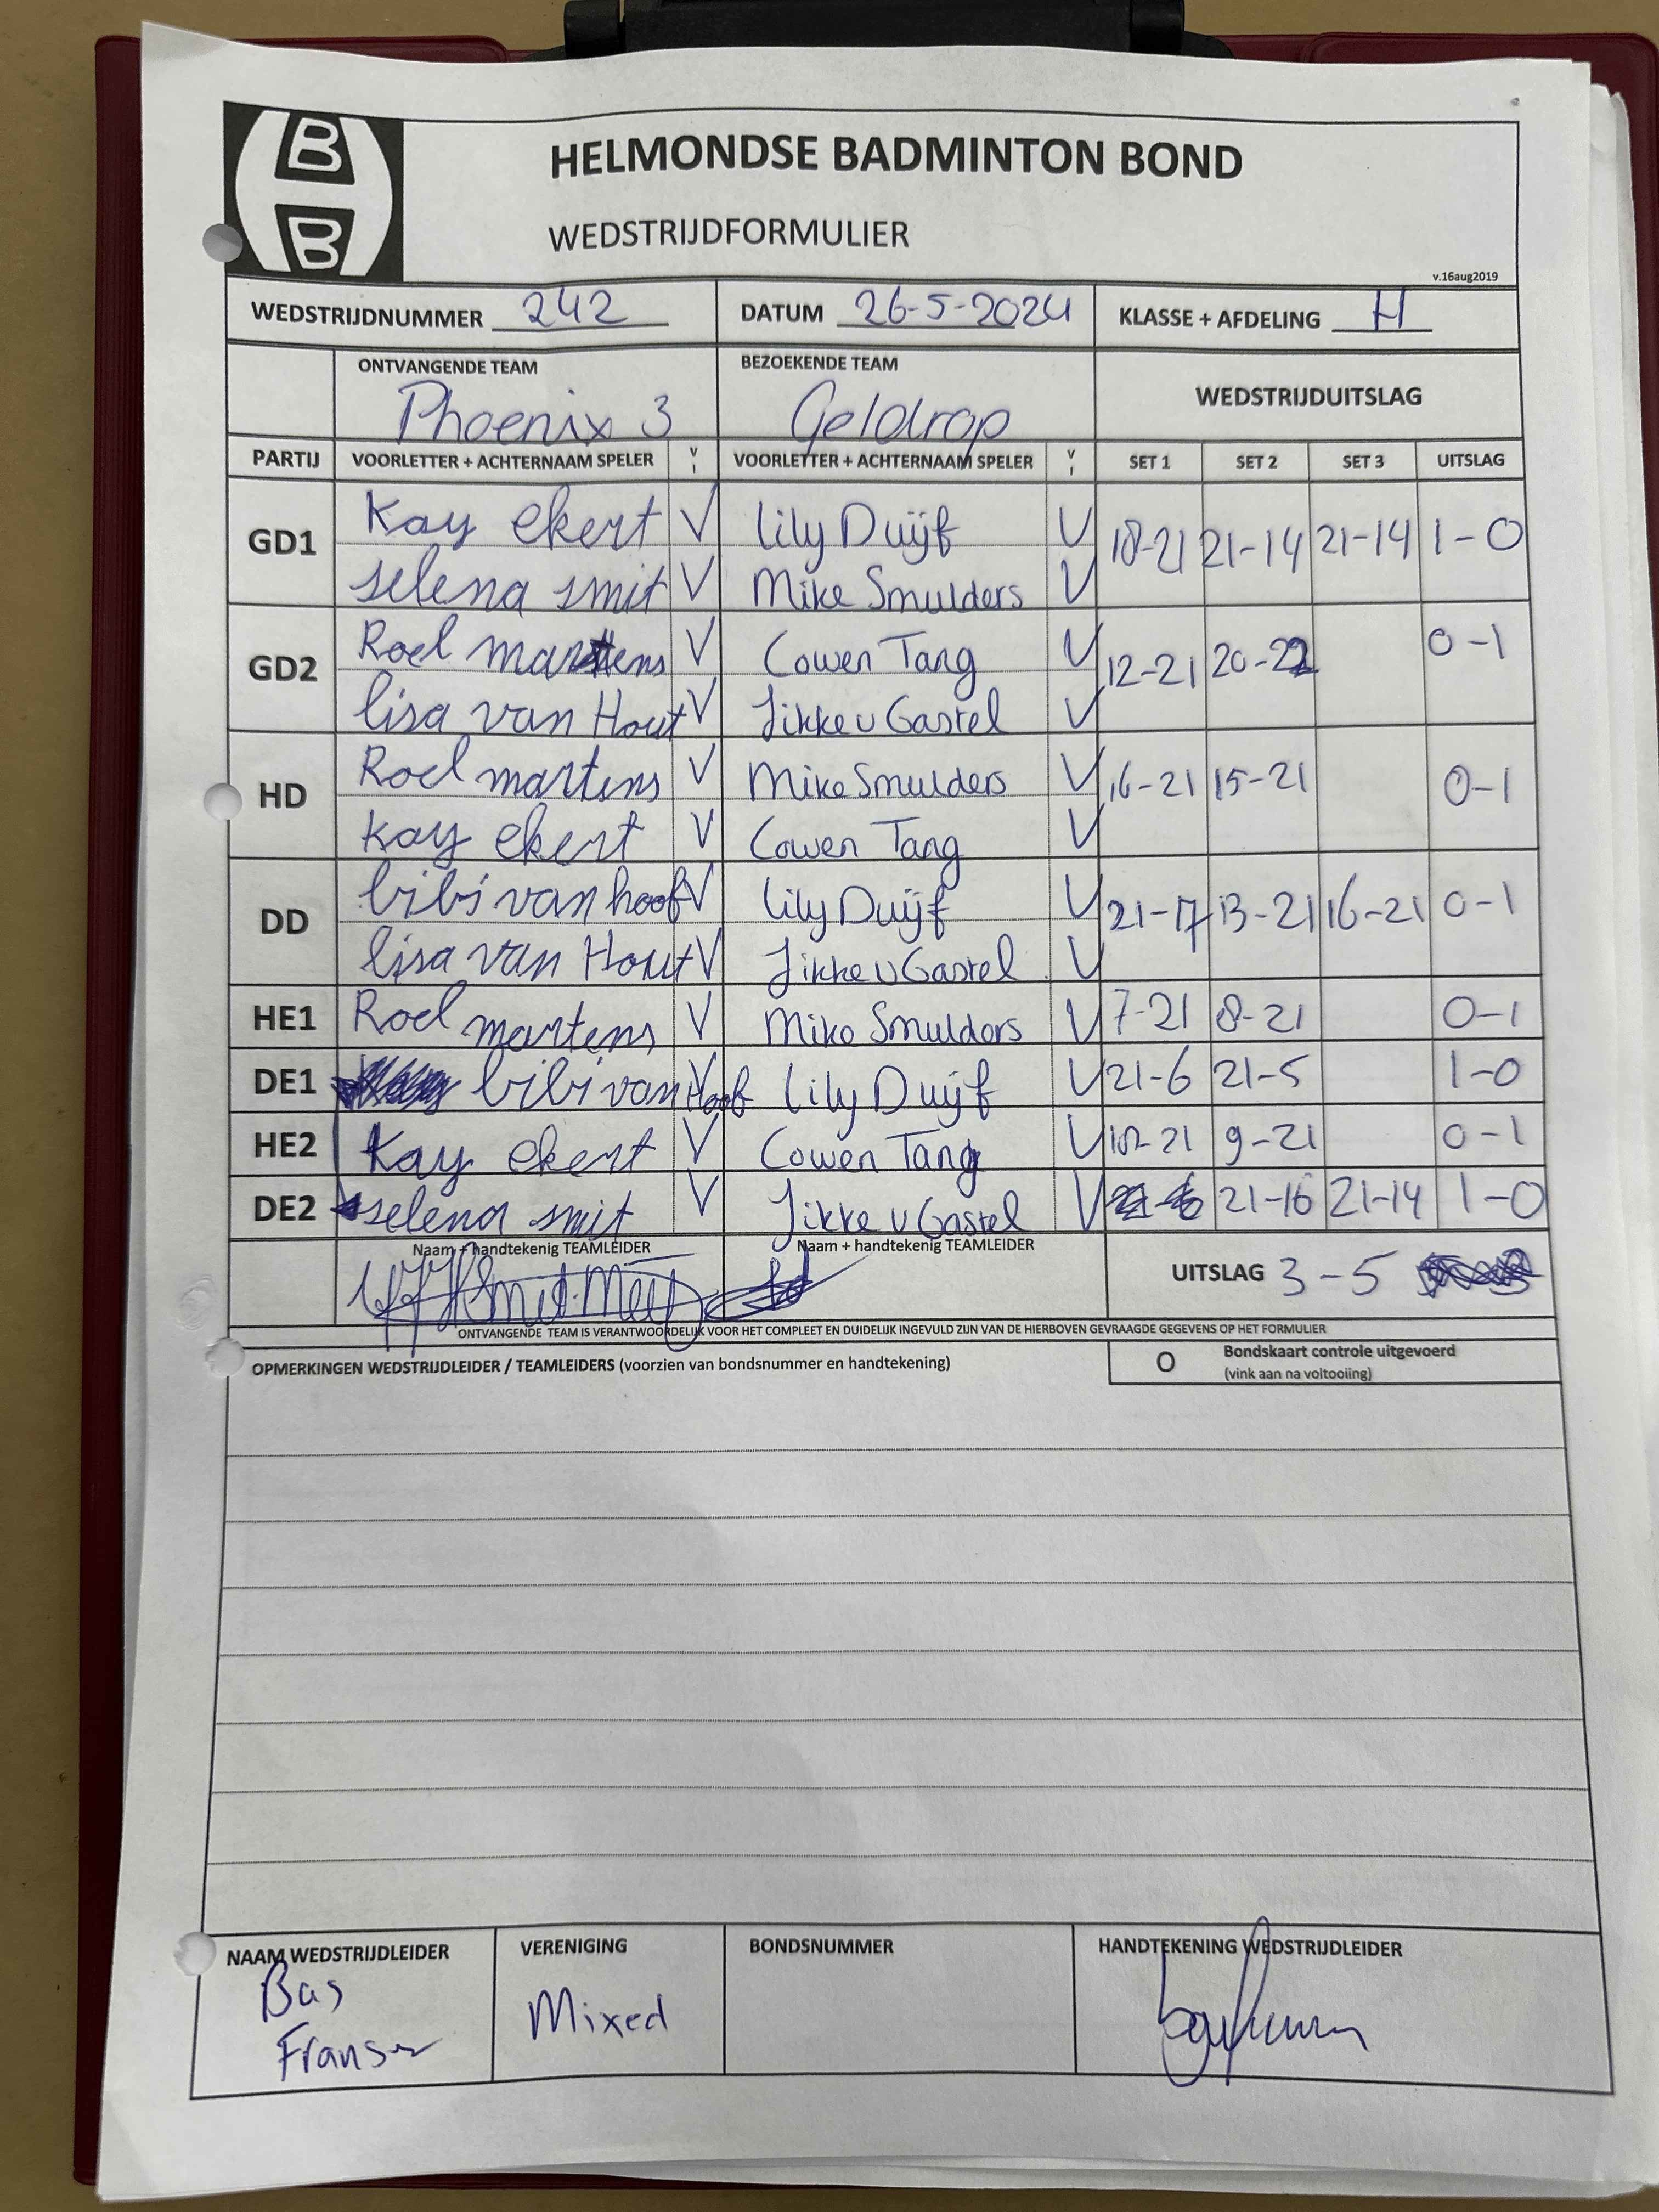 B
B
HELMONDSE BADMINTON BOND
WEDSTRIJDFORMULIER
v.16aug2019
WEDSTRIJDNUMMER 242 DATUM 26-5-2024 KLASSE + AFDELING H
ONTVANGENDE TEAM BEZOEKENDE TEAM WEDSTRIJDUITSLAG
Phoenix 3 Geldrop
PARTIJ VOORLETTER + ACHTERNAAM SPELER V I VOORLETTER + ACHTERNAAM SPELER V I SET 1 SET 2 SET 3 UITSLAG
GD1 Kay ekert V Lily Duijf V 18-21 21-14 21-14 1-0
selena smit V Mike Smulders V
GD2 Roel martens V Cowen Tang V 12-21 20-22 0-1
lisa van Hout V Jikke v Gastel V
HD Roel martens V Mike Smulders V 16-21 15-21 0-1
Kay ekert V Cowen Tang V
DD bibi van hoof V Lily Duijf V 21-17 13-21 16-21 0-1
lisa van Hout V Jikke v Gastel V
HE1 Roel martens V Mike Smulders V 7-21 8-21 0-1
DE1 bibi van Hoof V Lily Duijf V 21-6 21-5 1-0
HE2 Kay ekert V Cowen Tang V 21 9-21 0-1
DE2 selena smit V Jikke v Gastel V 21-16 21-14 1-0
Naam + handtekenig TEAMLEIDER Naam + handtekenig TEAMLEIDER UITSLAG 3-5
ONTVANGENDE TEAM IS VERANTWOORDELIJK VOOR HET COMPLEET EN DUIDELIJK INGEVULD ZIJN VAN DE HIERBOVEN GEVRAAGDE GEGEVENS OP HET FORMULIER
OPMERKINGEN WEDSTRIJDLEIDER / TEAMLEIDERS (voorzien van bondsnummer en handtekening) O Bondskaart controle uitgevoerd
(vink aan na voltooiing)
NAAM WEDSTRIJDLEIDER VERENIGING BONDSNUMMER HANDTEKENING WEDSTRIJDLEIDER
Bas Mixed